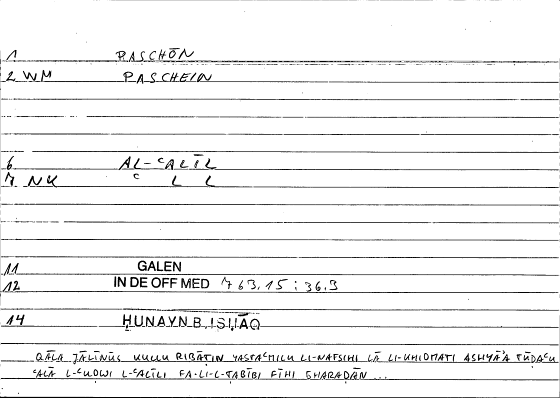 1 PASCHŌN
2 WM PASCHEIN
6 AL-ʿALĪL
7 NK ʿ L L
11 GALEN
12 IN DE OFF MED 763.15 : 36.9
14 ḤUNAYN B. ISḤĀQ
QĀLA JĀLĪNŪS KULLU RIBĀṬIN YASTAʿMILU LI-NAFSIHI LĀ LI-KHIDMATI ASHYĀʾA TŪḌAʿU
ʿALĀ L-ʿUḌWI L-ʿALĪLI FA-LI-L-ṬABĪBI FĪHI GHARAḌĀN ...